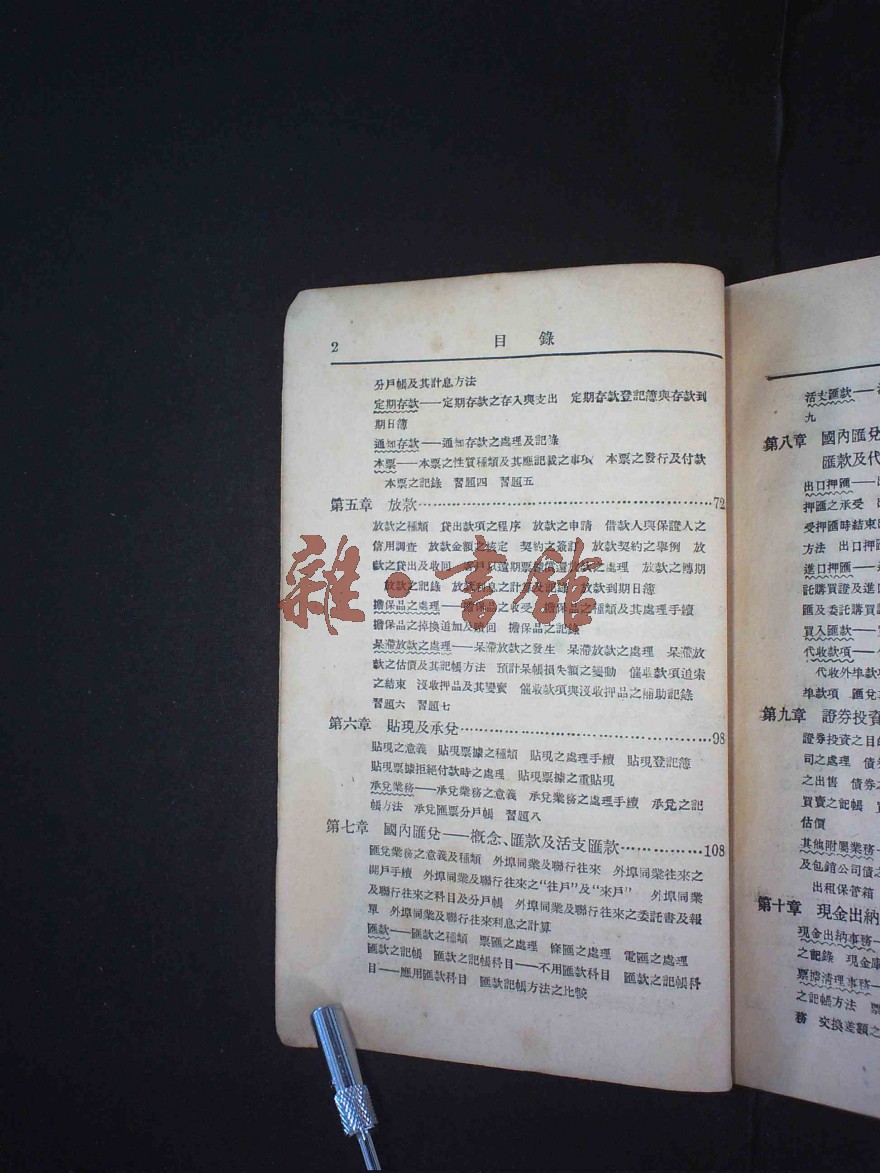 2
目錄
分戶帳及其計息方法
定期存款——定期存款之存入與支出 定期存款登記簿與存款到
期日簿
通知存款——通知存款之處理及記錄
本票——本票之性質種類及其應記載之事項 本票之發行及付款
本票之記錄 習題四 習題五
第五章 放款……72
放款之種類 貸出款項之程序 放款之申請 借款人與保證人之
信用調查 放款金額之核定 契約之簽訂 放款契約之舉例 放
款之貸出及收回 客戶以遠期票據償還放款之處理 放款之轉期
放款之記錄 放款利息之計算及記錄 放款到期日簿
擔保品之處理——擔保品之收受 擔保品之種類及其處理手續
擔保品之掉換追加及贖回 擔保品之記錄
呆滯放款之處理——呆滯放款之發生 呆滯放款之處理 呆滯放
款之估價及其記帳方法 預計呆帳損失額之變動 催收款項追索
之結束 沒收押品及其變賣 催收款項與沒收押品之補助記錄
習題六 習題七
第六章 貼現及承兌……98
貼現之意義 貼現票據之種類 貼現之處理手續 貼現登記簿
貼現票據拒絕付款時之處理 貼現票據之重貼現
承兌業務——承兌業務之意義 承兌業務之處理手續 承兌之記
帳方法 承兌匯票分戶帳 習題八
第七章 國內匯兌——概念、匯款及活支匯款……108
匯兌業務之意義及種類 外埠同業及聯行往來 外埠同業往來之
開戶手續 外埠同業及聯行往來之“往戶”及“來戶” 外埠同業
及聯行往來之科目及分戶帳 外埠同業及聯行往來之委託書及報
單 外埠同業及聯行往來利息之計算
匯款——匯款之種類 票匯之處理 條匯之處理 電匯之處理
匯款之記帳 匯款之記帳科目——不用匯款科目 匯款之記帳科
目——應用匯款科目 匯款記帳方法之比較
活支匯款——
九
第八章 國內匯兌
匯款及代
出口押匯——
押匯之承受
受押匯時結束
方法 出口押匯
進口押匯——
託購買證及進口
匯及委託購買
買入匯款——
代收款項——
代收外埠款
埠款項 匯兌
第九章 證券投資
證券投資之目
司之處理 債券
之出售 債券
買賣之記帳
估價
其他附屬業務——
及包銷公司債之
出租保管箱
第十章 現金出納
現金出納事務——
之記錄 現金庫
票據清理事務——
之記帳方法 票
務 交換差額之
雜·書館